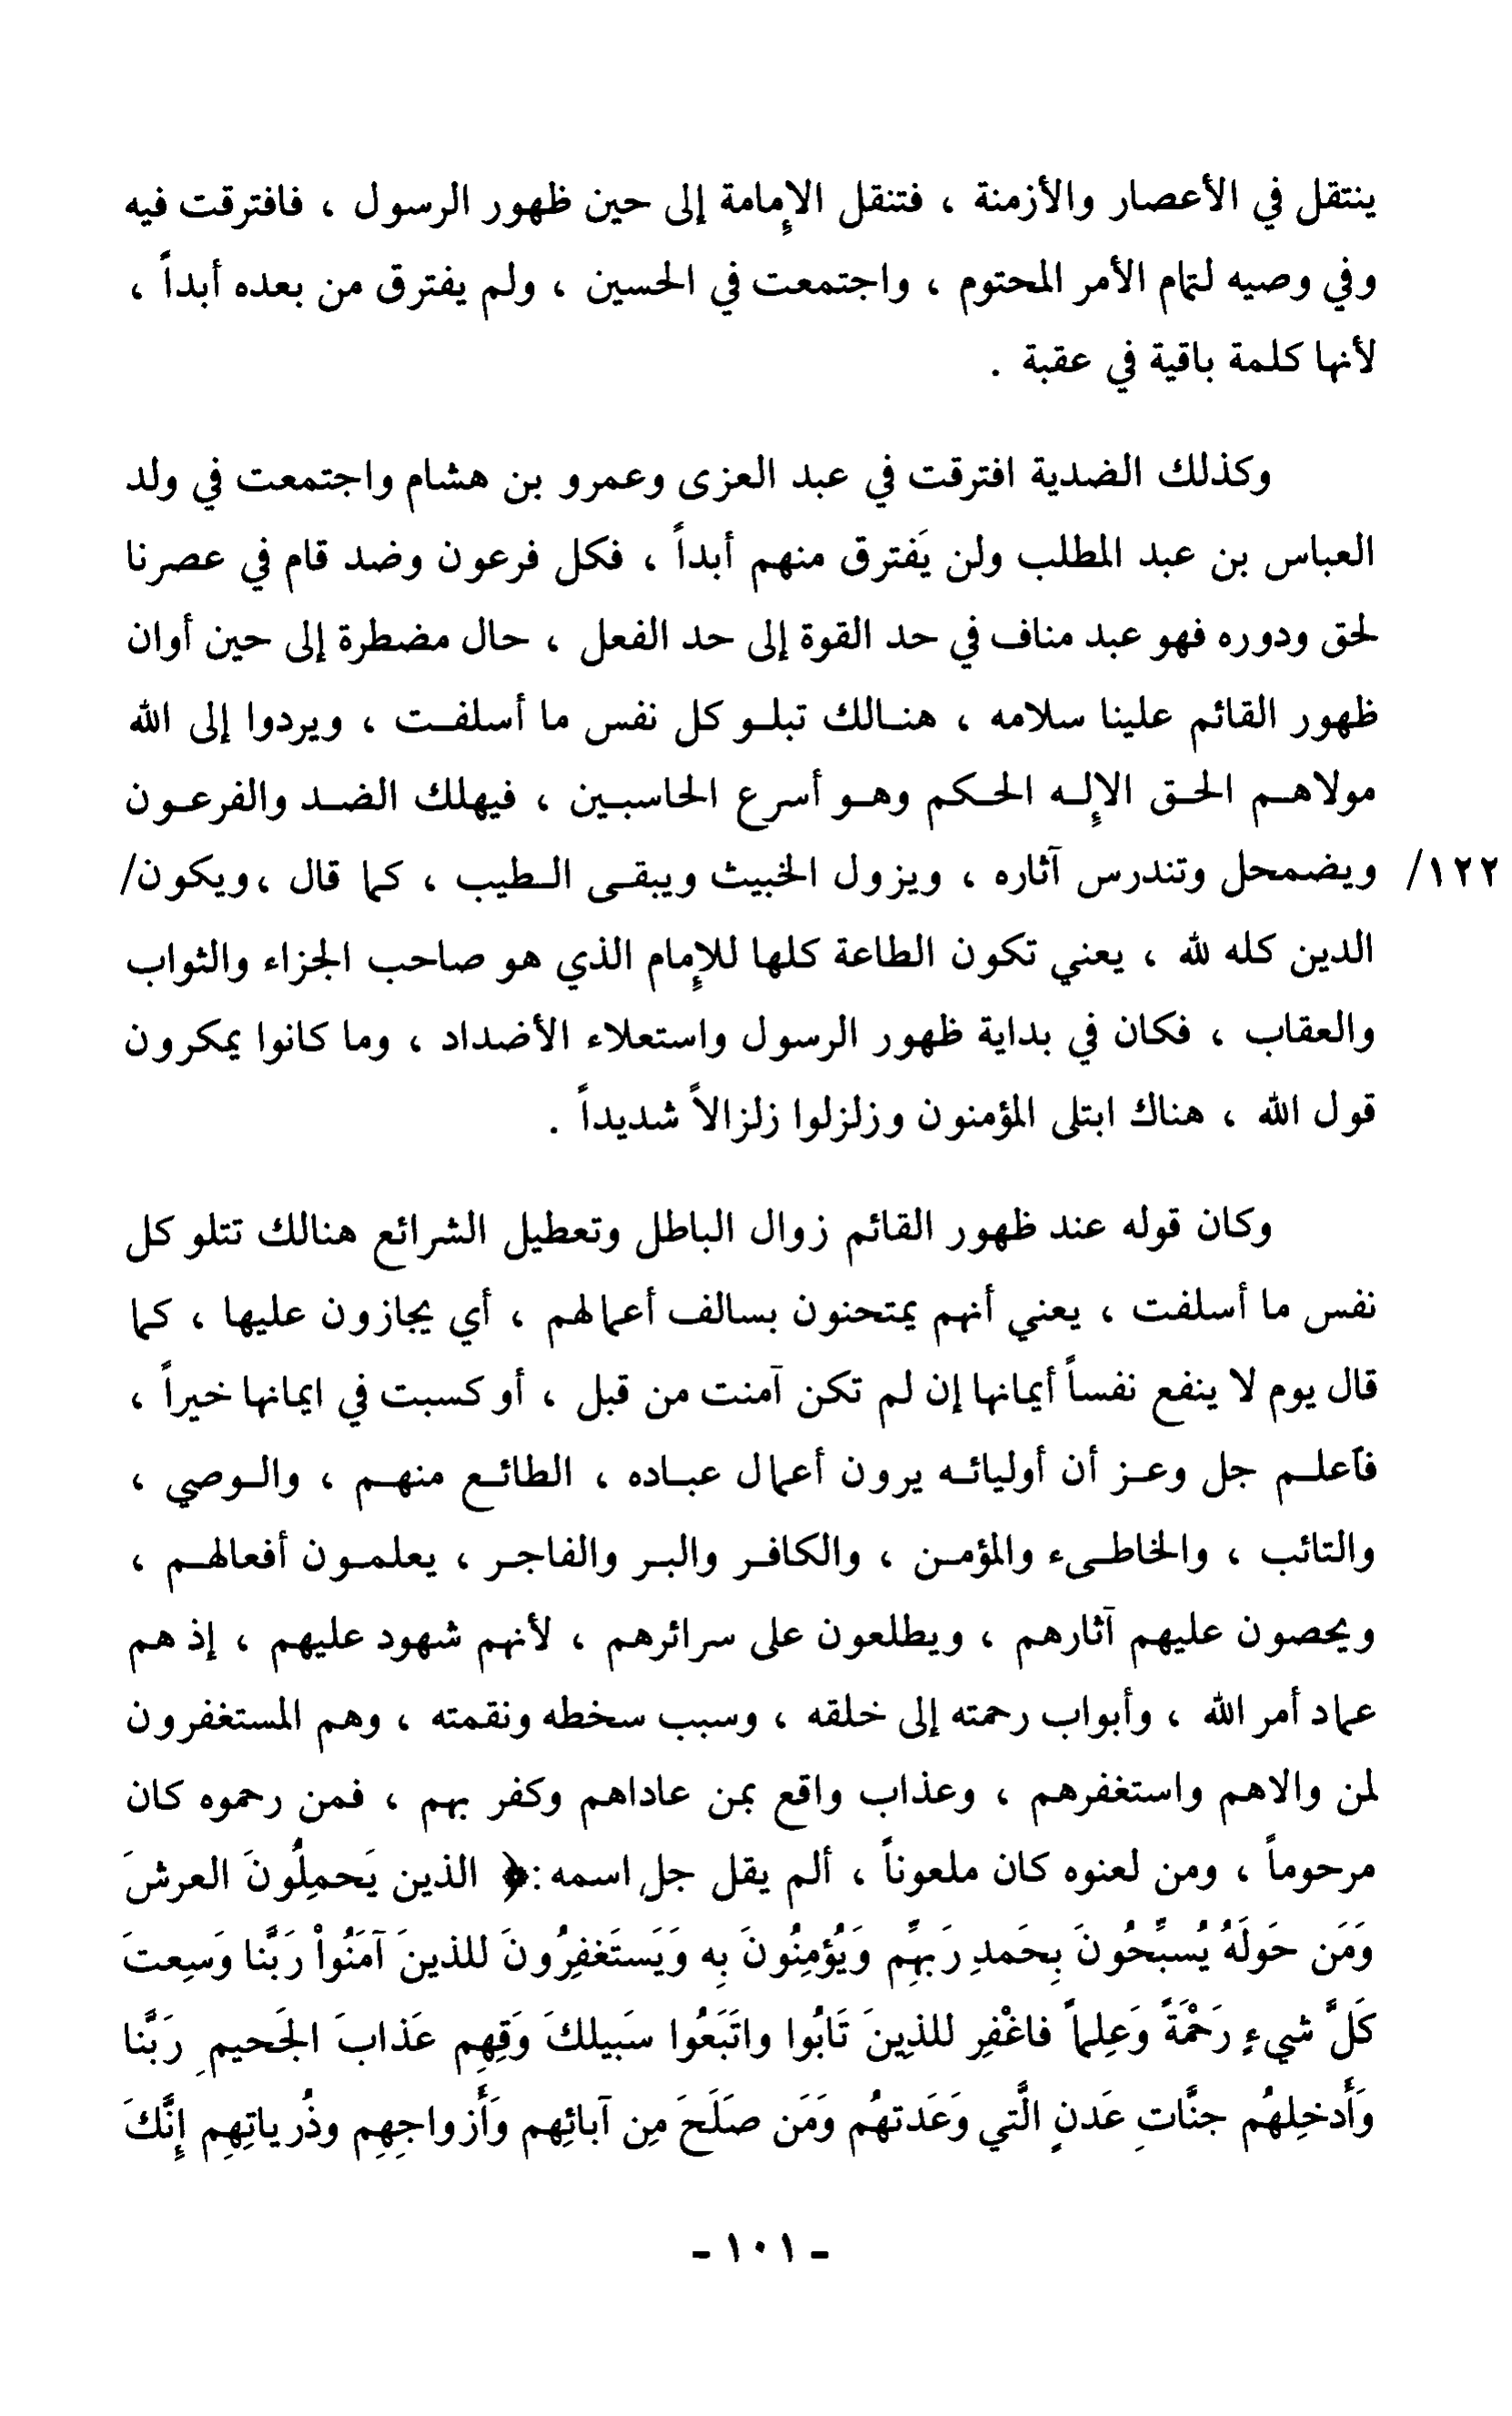 ينتقل في الأعصار والأزمنة ، فتنقل الإمامة إلى حين ظهور الرسول ، فافترقت فيه
وفي وصيه لتمام الأمر المحتوم ، واجتمعت في الحسين ، ولم يفترق من بعده أبداً ،
لأنها كلمة باقية في عقبة .
وكذلك الضدية افترقت في عبد العزى وعمرو بن هشام واجتمعت في ولد
العباس بن عبد المطلب ولن يَفترق منهم أبداً ، فكل فرعون وضد قام في عصرنا
لحق ودوره فهو عبد مناف في حد القوة إلى حد الفعل ، حال مضطرة إلى حين أوان
ظهور القائم علينا سلامه ، هنالك تبلو كل نفس ما أسلفت ، ويردوا إلى الله
مولاهم الحق الإله الحكم وهو أسرع الحاسبين ، فيهلك الضد والفرعون
١٢٢/ ويضمحل وتندرس آثاره ، ويزول الخبيث ويبقى الطيب ، كما قال ،ويكون/
الدين كله لله ، يعني تكون الطاعة كلها للإمام الذي هو صاحب الجزاء والثواب
والعقاب ، فكان في بداية ظهور الرسول واستعلاء الأضداد ، وما كانوا يمكرون
قول الله ، هناك ابتلى المؤمنون وزلزلوا زلزالاً شديداً .
وكان قوله عند ظهور القائم زوال الباطل وتعطيل الشرائع هنالك تتلو كل
نفس ما أسلفت ، يعني أنهم يمتحنون بسالف أعمالهم ، أي يجازون عليها ، كما
قال يوم لا ينفع نفساً أيمانها إن لم تكن آمنت من قبل ، أو كسبت في ايمانها خيراً ،
فآعلم جل وعز أن أوليائه يرون أعمال عباده ، الطائع منهم ، والوصي ،
والتائب ، والخاطىء والمؤمن ، والكافر والبر والفاجر ، يعلمون أفعالهم ،
ويحصون عليهم آثارهم ، ويطلعون على سرائرهم ، لأنهم شهود عليهم ، إذ هم
عماد أمر الله ، وأبواب رحمته إلى خلقه ، وسبب سخطه ونقمته ، وهم المستغفرون
لمن والاهم واستغفرهم ، وعذاب واقع بمن عاداهم وكفر بهم ، فمن رحموه كان
مرحوماً ، ومن لعنوه كان ملعوناً ، ألم يقل جل اسمه :﴿ الذين يَحمِلُونَ العرشَ
وَمَن حَولَهُ يُسبِّحُونَ بِحَمدِ رَبهِّم وَيُؤمِنُونَ بِه وَيَستَغفِرُونَ للذينَ آمَنُواْ رَبَّنا وَسِعتَ
كَلَّ شيءٍ رَحْمَةً وَعِلماً فاغْفِر للذِينَ تَابُوا واتَبَعُوا سَبيلكَ وَقِهِم عَذابَ الجَحيمِ رَبَّنا
وَأَدخِلهُم جنَّاتِ عَدنٍ الَّتي وَعَدتهُم وَمَن صَلَحَ مِن آبائِهم وَأَزواجِهِم وذُرياتِهِم إِنَّكَ
ـ ١٠١ ـ